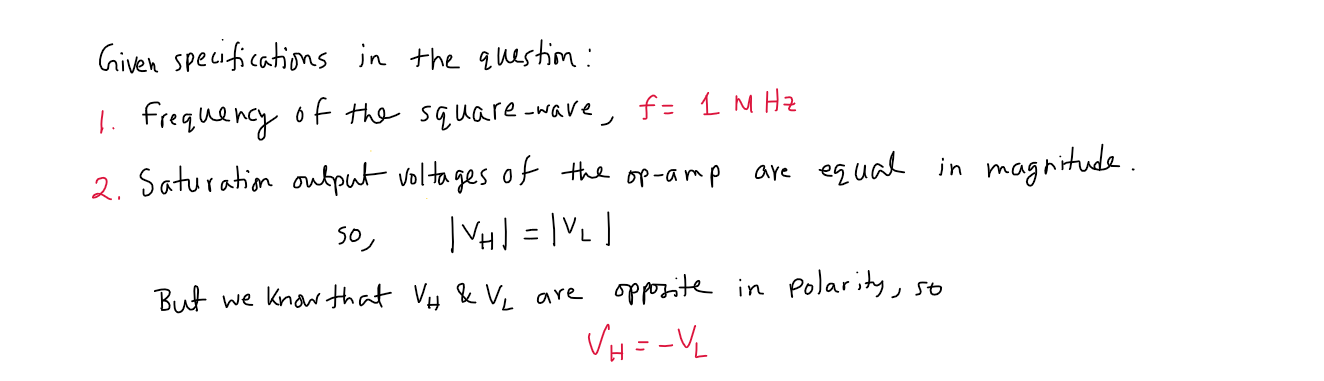 Given specifications in the question :
1. Frequency of the square-wave, f = 1 MHz
2. Saturation output voltages of the op-amp are equal in magnitude.
so, |V_H| = |V_L|
But we know that V_H & V_L are opposite in polarity, so
V_H = -V_L